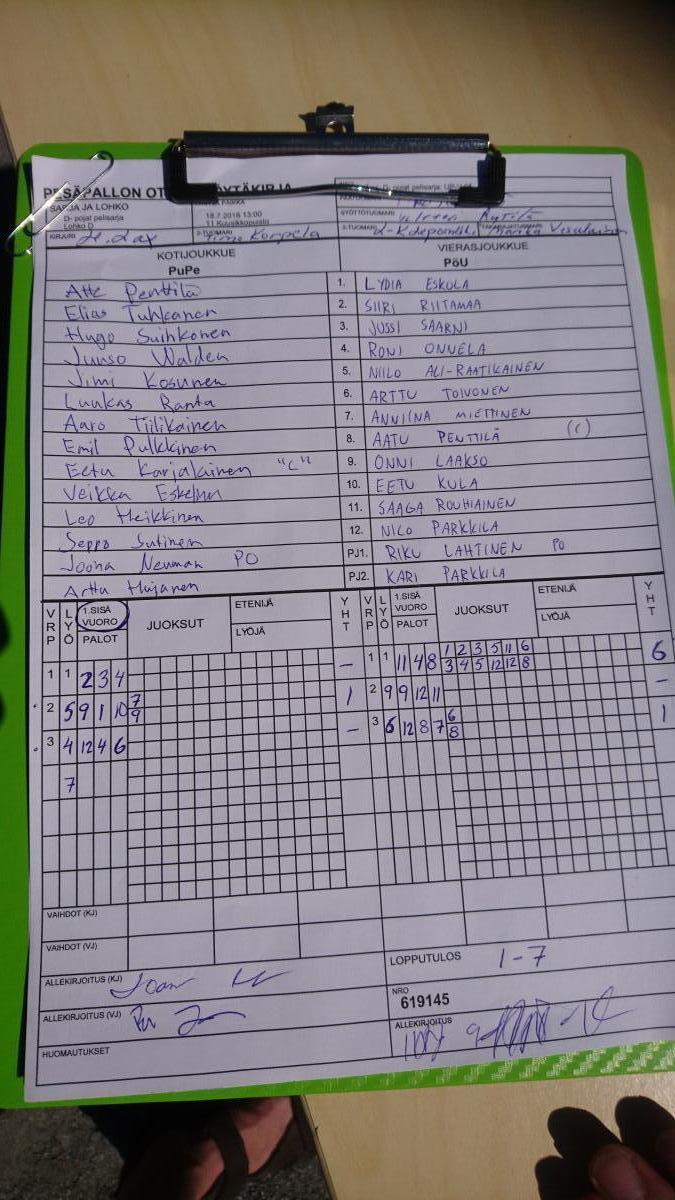 PESÄPALLON OT
ÄYTÄKIRJA
SARJA JA LOHKO
D- pojat pelisarja
Lohko D
18.7.2018 13:00
11 Kuusikkopuisto
D- pojat pelisarja
SYÖTTÖTUOMARI
KIRJURI
2-TUOMARI Timo Korpela
3-TUOMARI
KOTIJOUKKUE
PuPe
VIERASJOUKKUE
PöU
Atte Penttilä 1. LYDIA ESKOLA
Elias Tuhkanen 2. SIIRI RIITAMAA
Hugo Suihkonen 3. JUSSI SAARNI
Juuso Walden 4. RONI ONNELA
Jimi Kosunen 5. NIILO ALI-RAATIKAINEN
Luukas Ranta 6. ARTTU TOIVONEN
Aaro Tiilikainen 7. ANNIINA MIETTINEN
Emil Pulkkinen 8. AATU PENTTILÄ (C)
Eetu Karjalainen "C" 9. ONNI LAAKSO
Veikka Eskelinen 10. EETU KULA
Leo Heikkinen 11. SAAGA ROUHIAINEN
Seppo Sutinen 12. NILO PARKKILA
Joona Neuman PO PJ1. RIKU LAHTINEN PO
Arttu Hujanen PJ2. KARI PARKKILA
VRP LYÖ 1.SISÄ VUORO PALOT JUOKSUT ETENIJÄ LYÖJÄ YHT VRP LYÖ 1.SISÄ VUORO PALOT JUOKSUT ETENIJÄ LYÖJÄ YHT
1 1 2 3 4 – 1 1 11 4 8 1 2 3 5 11 6 6
3 4 5 12 12 8
2 5 9 1 10 7 1 2 9 9 12 11 –
9
3 4 12 4 6 – 3 6 12 8 7 6 1
8
7
VAIHDOT (KJ)
VAIHDOT (VJ)
ALLEKIRJOITUS (KJ)
LOPPUTULOS 1-7
ALLEKIRJOITUS (VJ)
NRO
619145
ALLEKIRJOITUS
HUOMAUTUKSET